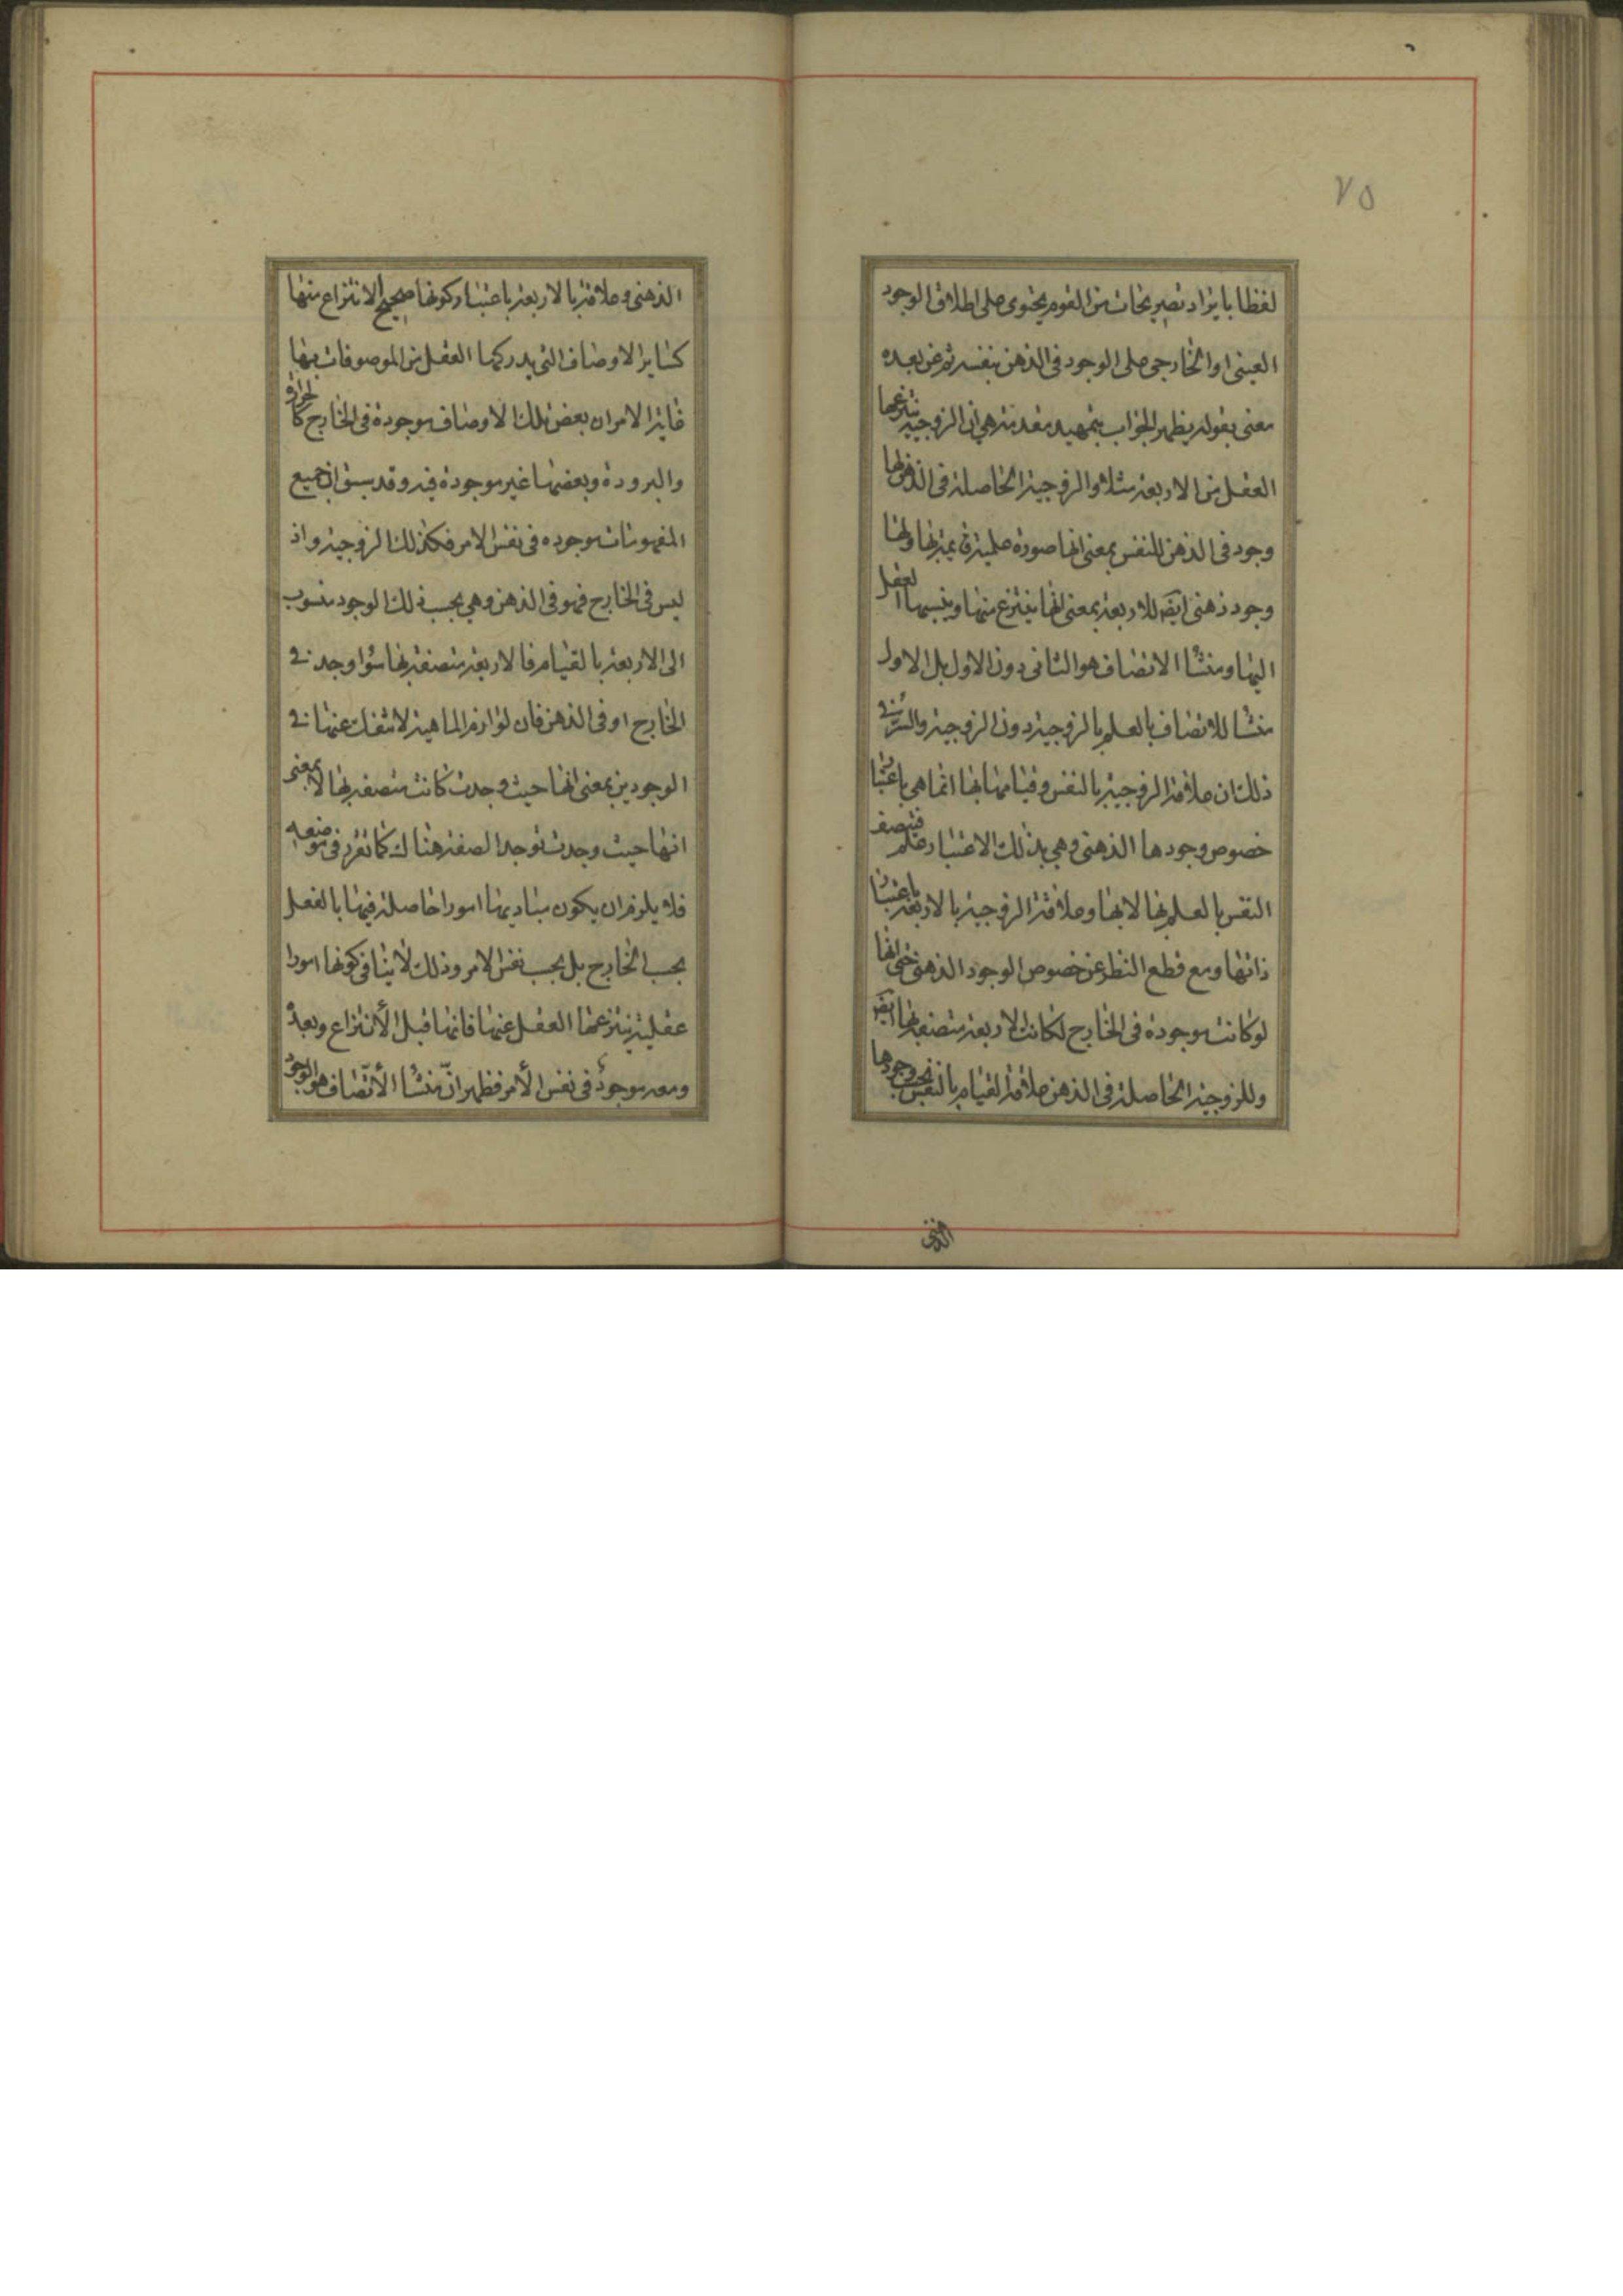 ٧٥
لفظا بايراد تصريحات من القوم يحتوى على اطلاق الوجود
العينى او الخارجى على الوجود فى الذهن بنفسه ثم عن بعده
معنى بقوله يظهر الجواب بتمهيد مقدمة هى ان الزوجية ينتزعها
العقل من الاربعة مثلا والزوجية الحاصلة فى الذهن لها
وجود فى الذهن للنفس بمعنى انها صورة علمية قايمة بها ولها
وجود ذهنى ايضا للاربعة بمعنى انها ينتزع منها وينسبها العقل
اليها ومنشأ الاتصاف هو الثانى دون الاول بل الاول
منشا للاتصاف بالعلم بالزوجية دون الزوجية والسر فى
ذلك ان علاقة الزوجية بالنفس وقيامها بها انما هى باعتبار
خصوص وجودها الذهنى وهى بذلك الاعتبار علم فيتصف
النفس بالعلم بها لا بها وعلاقة الزوجية بالاربعة باعتبار
ذاتها ومع قطع النظر عن خصوص الوجود الذهنى حتى انها
لو كانت موجودة فى الخارج لكانت الاربعة متصفة بها ايضا
وللزوجية الحاصلة فى الذهن علاقة القيام بالنفس بحسب وجودها
الذهنى
الذهنى وعلاقة بالاربعة باعتبار كونها صحيح الانتزاع منها
كساير الاوصاف التى يدركها العقل من الموصوفات بها
غاية الامر ان بعض تلك الاوصاف موجودة فى الخارج كالحرارة
والبرودة وبعضها غير موجودة فيه وقد سبق ان جميع
المفهومات موجوده فى نفس الامر فكذلك الزوجية واذ
ليس فى الخارج فهو فى الذهن وهى بحسب ذلك الوجود منسوب
الى الاربعة بالقيام فالاربعة متصفة بها سواء وجد فى
الخارج او فى الذهن فان لوازم الماهية لا تنفك عنها فى
الوجودين بمعنى انها حيث وجدت كانت متصفة بها لا بمعنى
انها حيث وجدت توجد الصفة هناك كما تقرر فى موضعه
فلا يلزم ان يكون مباديها امورا حاصلة فيها بالفعل
بحسب الخارج بل بحسب نفس الامر وذلك لا ينافى كونها امورا
عقلية ينتزعها العقل عنها فانها قبل الانتزاع وبعده
ومعه موجودة فى نفس الامر فظهر ان منشأ الاتصاف هو الوجود